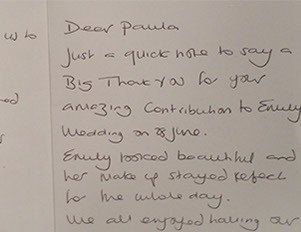 us to
Dear Paula
Just a quick note to say a
Big Thank You for your
amazing Contribution to Emily
Wedding on 8 June.
Emily looked beautiful and
her make up stayed perfect
for the whole day.
We all enjoyed having our